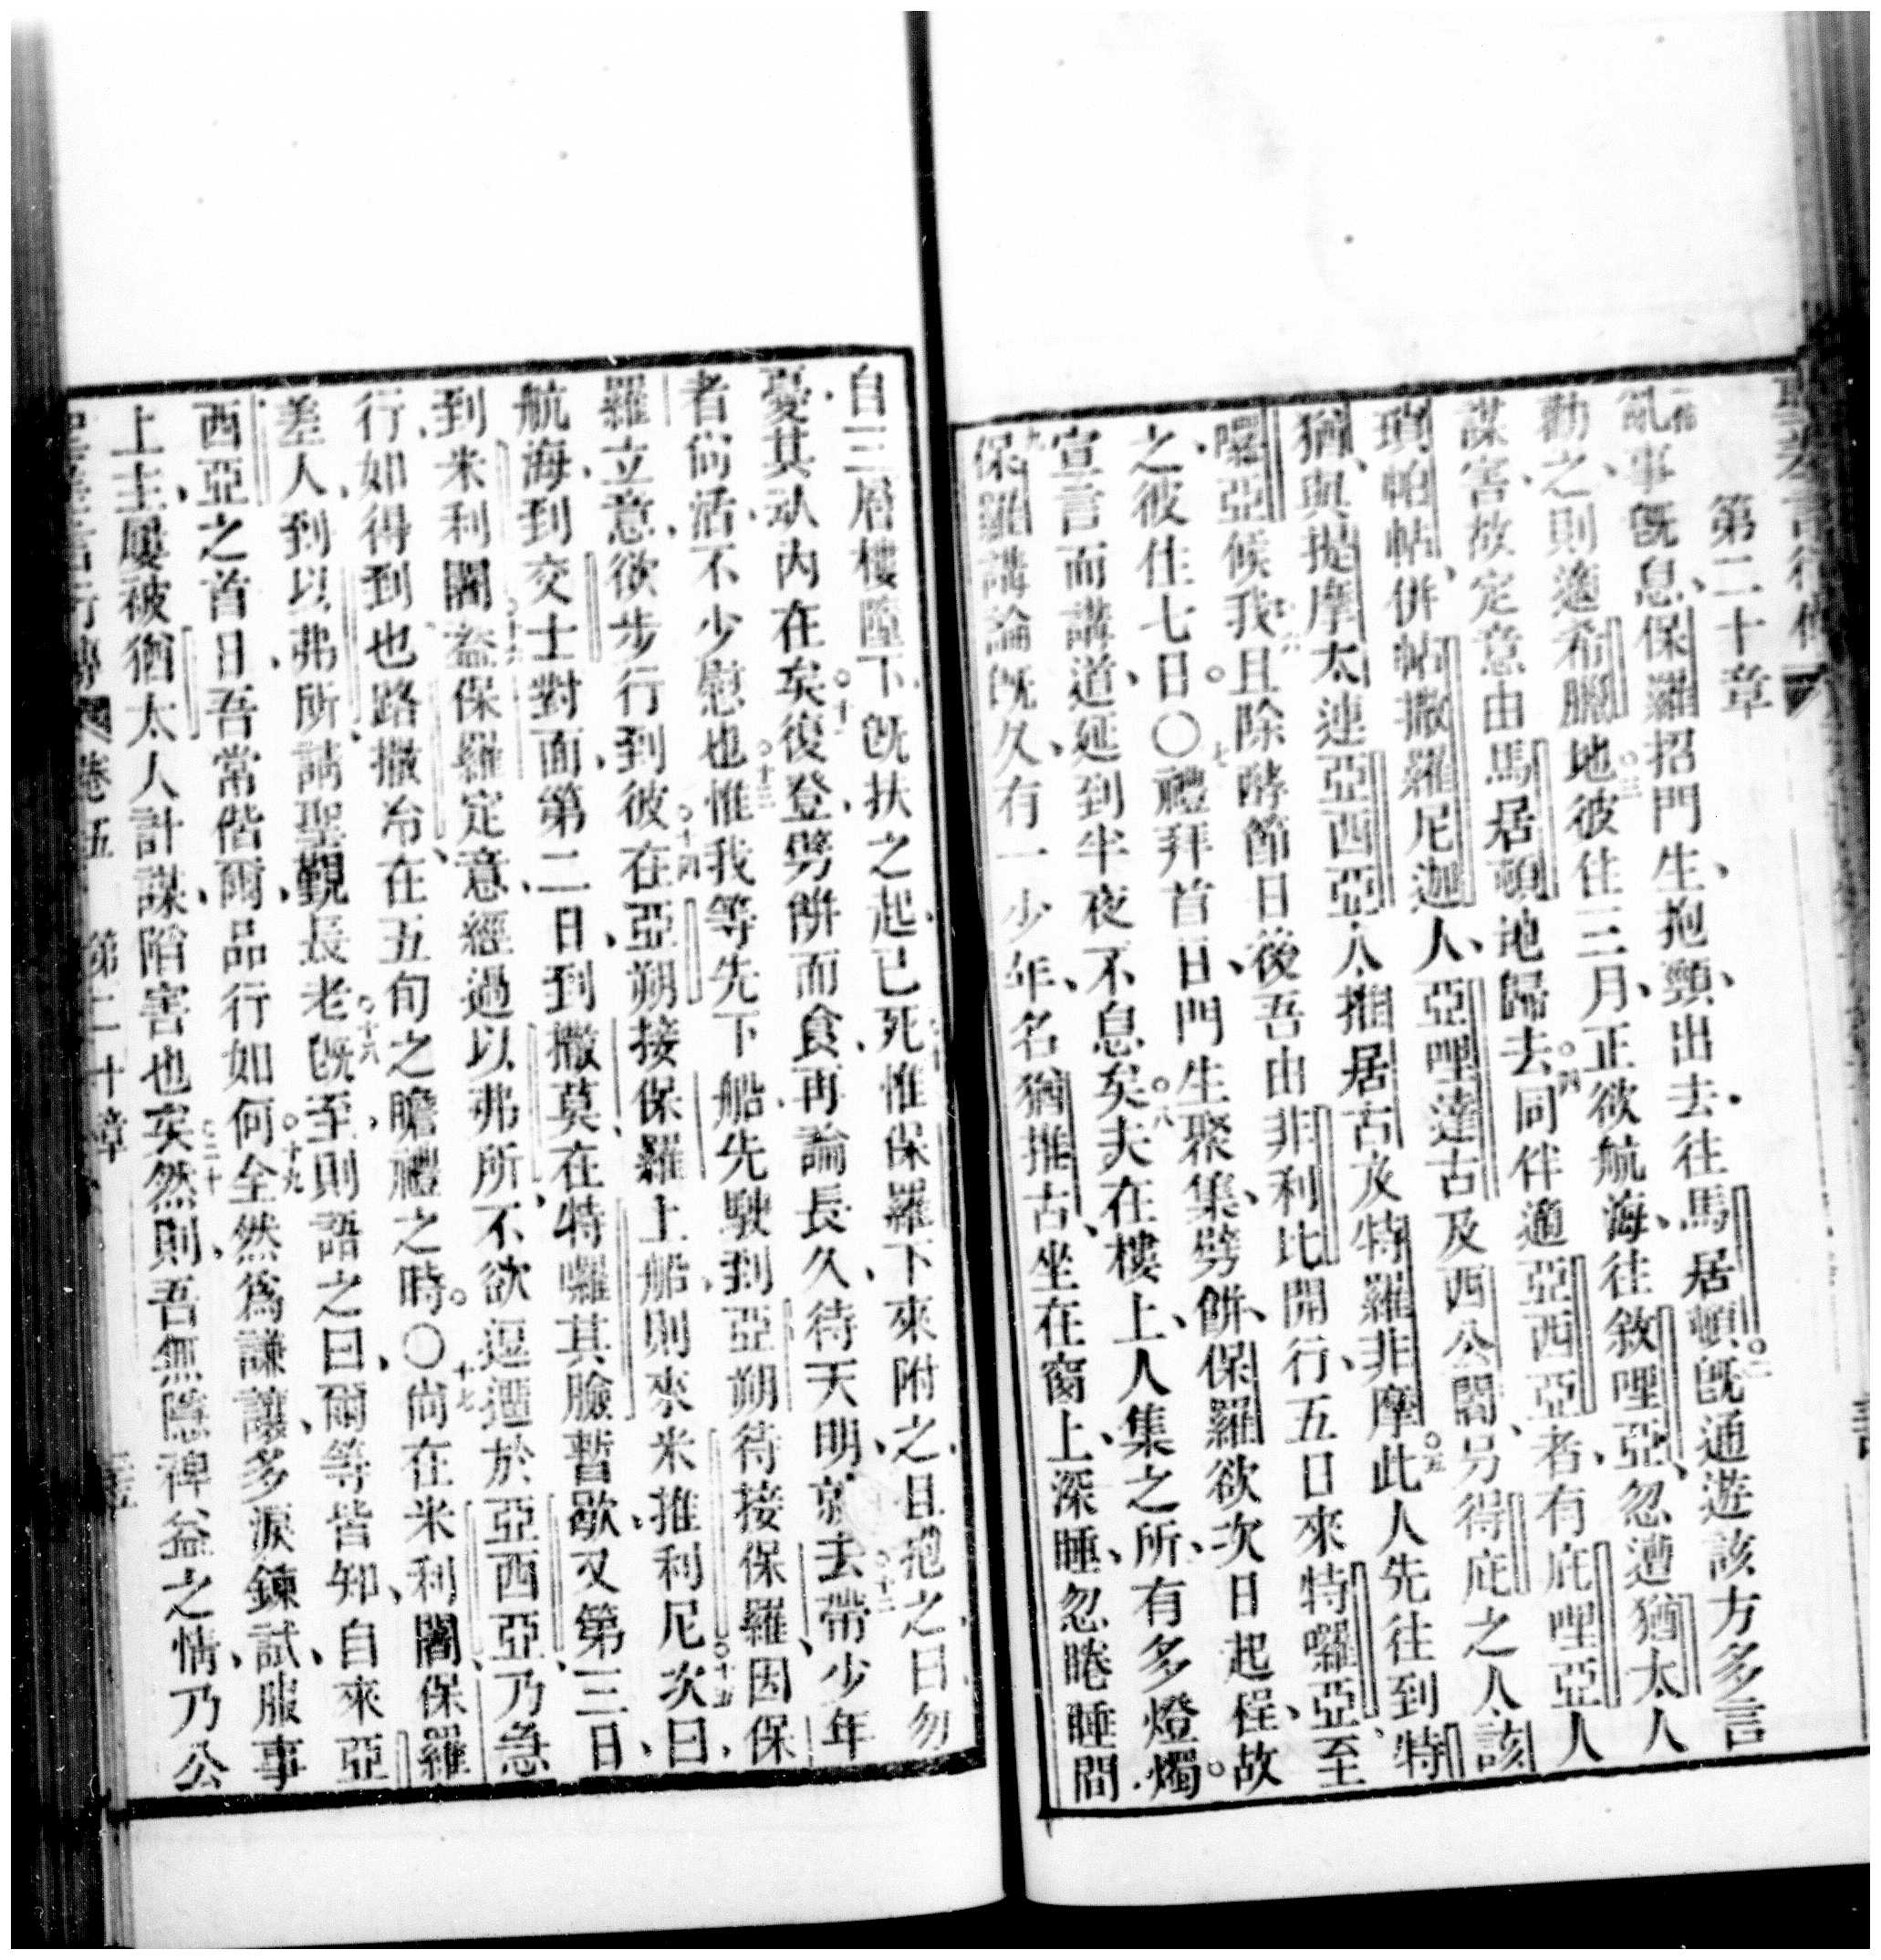 第二十章
亂事既息、保羅招門生、抱頸、出去往馬居頓。○二既通遊該方多言
勸之、則適希臘地○三彼住三月、正欲航海、往敘哩亞、忽遭猶太人
謀害、故定意由馬居頓地歸去。○四同伴適亞西亞者、有庇哩亞人
瑣帕帖、併帖撒羅尼迦人、亞哩達古及西公閣、另得庇之人、該
猶、與提摩太、連亞西亞人、推居古及特羅非摩。○五此人先往到特
囉亞候我○六且除酵節日後、吾由非利比開行、五日來特囉亞、至
之、彼住七日。○七禮拜首日、門生聚集、劈餅、保羅欲次日起程、故
宣言而講道、延到半夜不息矣。○八夫在樓上、人集之所、有多燈燭。
九保羅講論既久、有一少年、名猶推古、坐在窗上、深睡、忽睠睡間、
自三層樓墮下、既扶之起、已死○十惟保羅下來附之、且抱之曰、勿
憂、其㺱內在矣。○十一復登、劈餅而食、再論長久、待天明、就去○十二帶少年
者尚活、不少慰也○十三惟我等先下船、先駛到亞朔、待接保羅、因保
羅立意、欲步行到彼○十四在亞朔接保羅上船、則來米推利尼○十五次日、
航海、到交士對面、第二日、到撒莫、在特囉其臉暫歇、又第三日、
到米利閣○十六蓋保羅定意、經過以弗所、不欲逗遛於亞西亞、乃急
行、如得到也路撒冷、在五旬之瞻禮之時。○十七尚在米利閣、保羅
差人、到以弗所、請聖覲長老○十八既至、則語之曰、爾等皆知、自來亞
西亞之首日、吾常偕爾、品行如何○十九全然為謙讓、多淚、鍊試、服事
上主、屢被猶太人計謀陷害也矣○二十然則、吾無隱裨益之情、乃公
卷五 第二十章